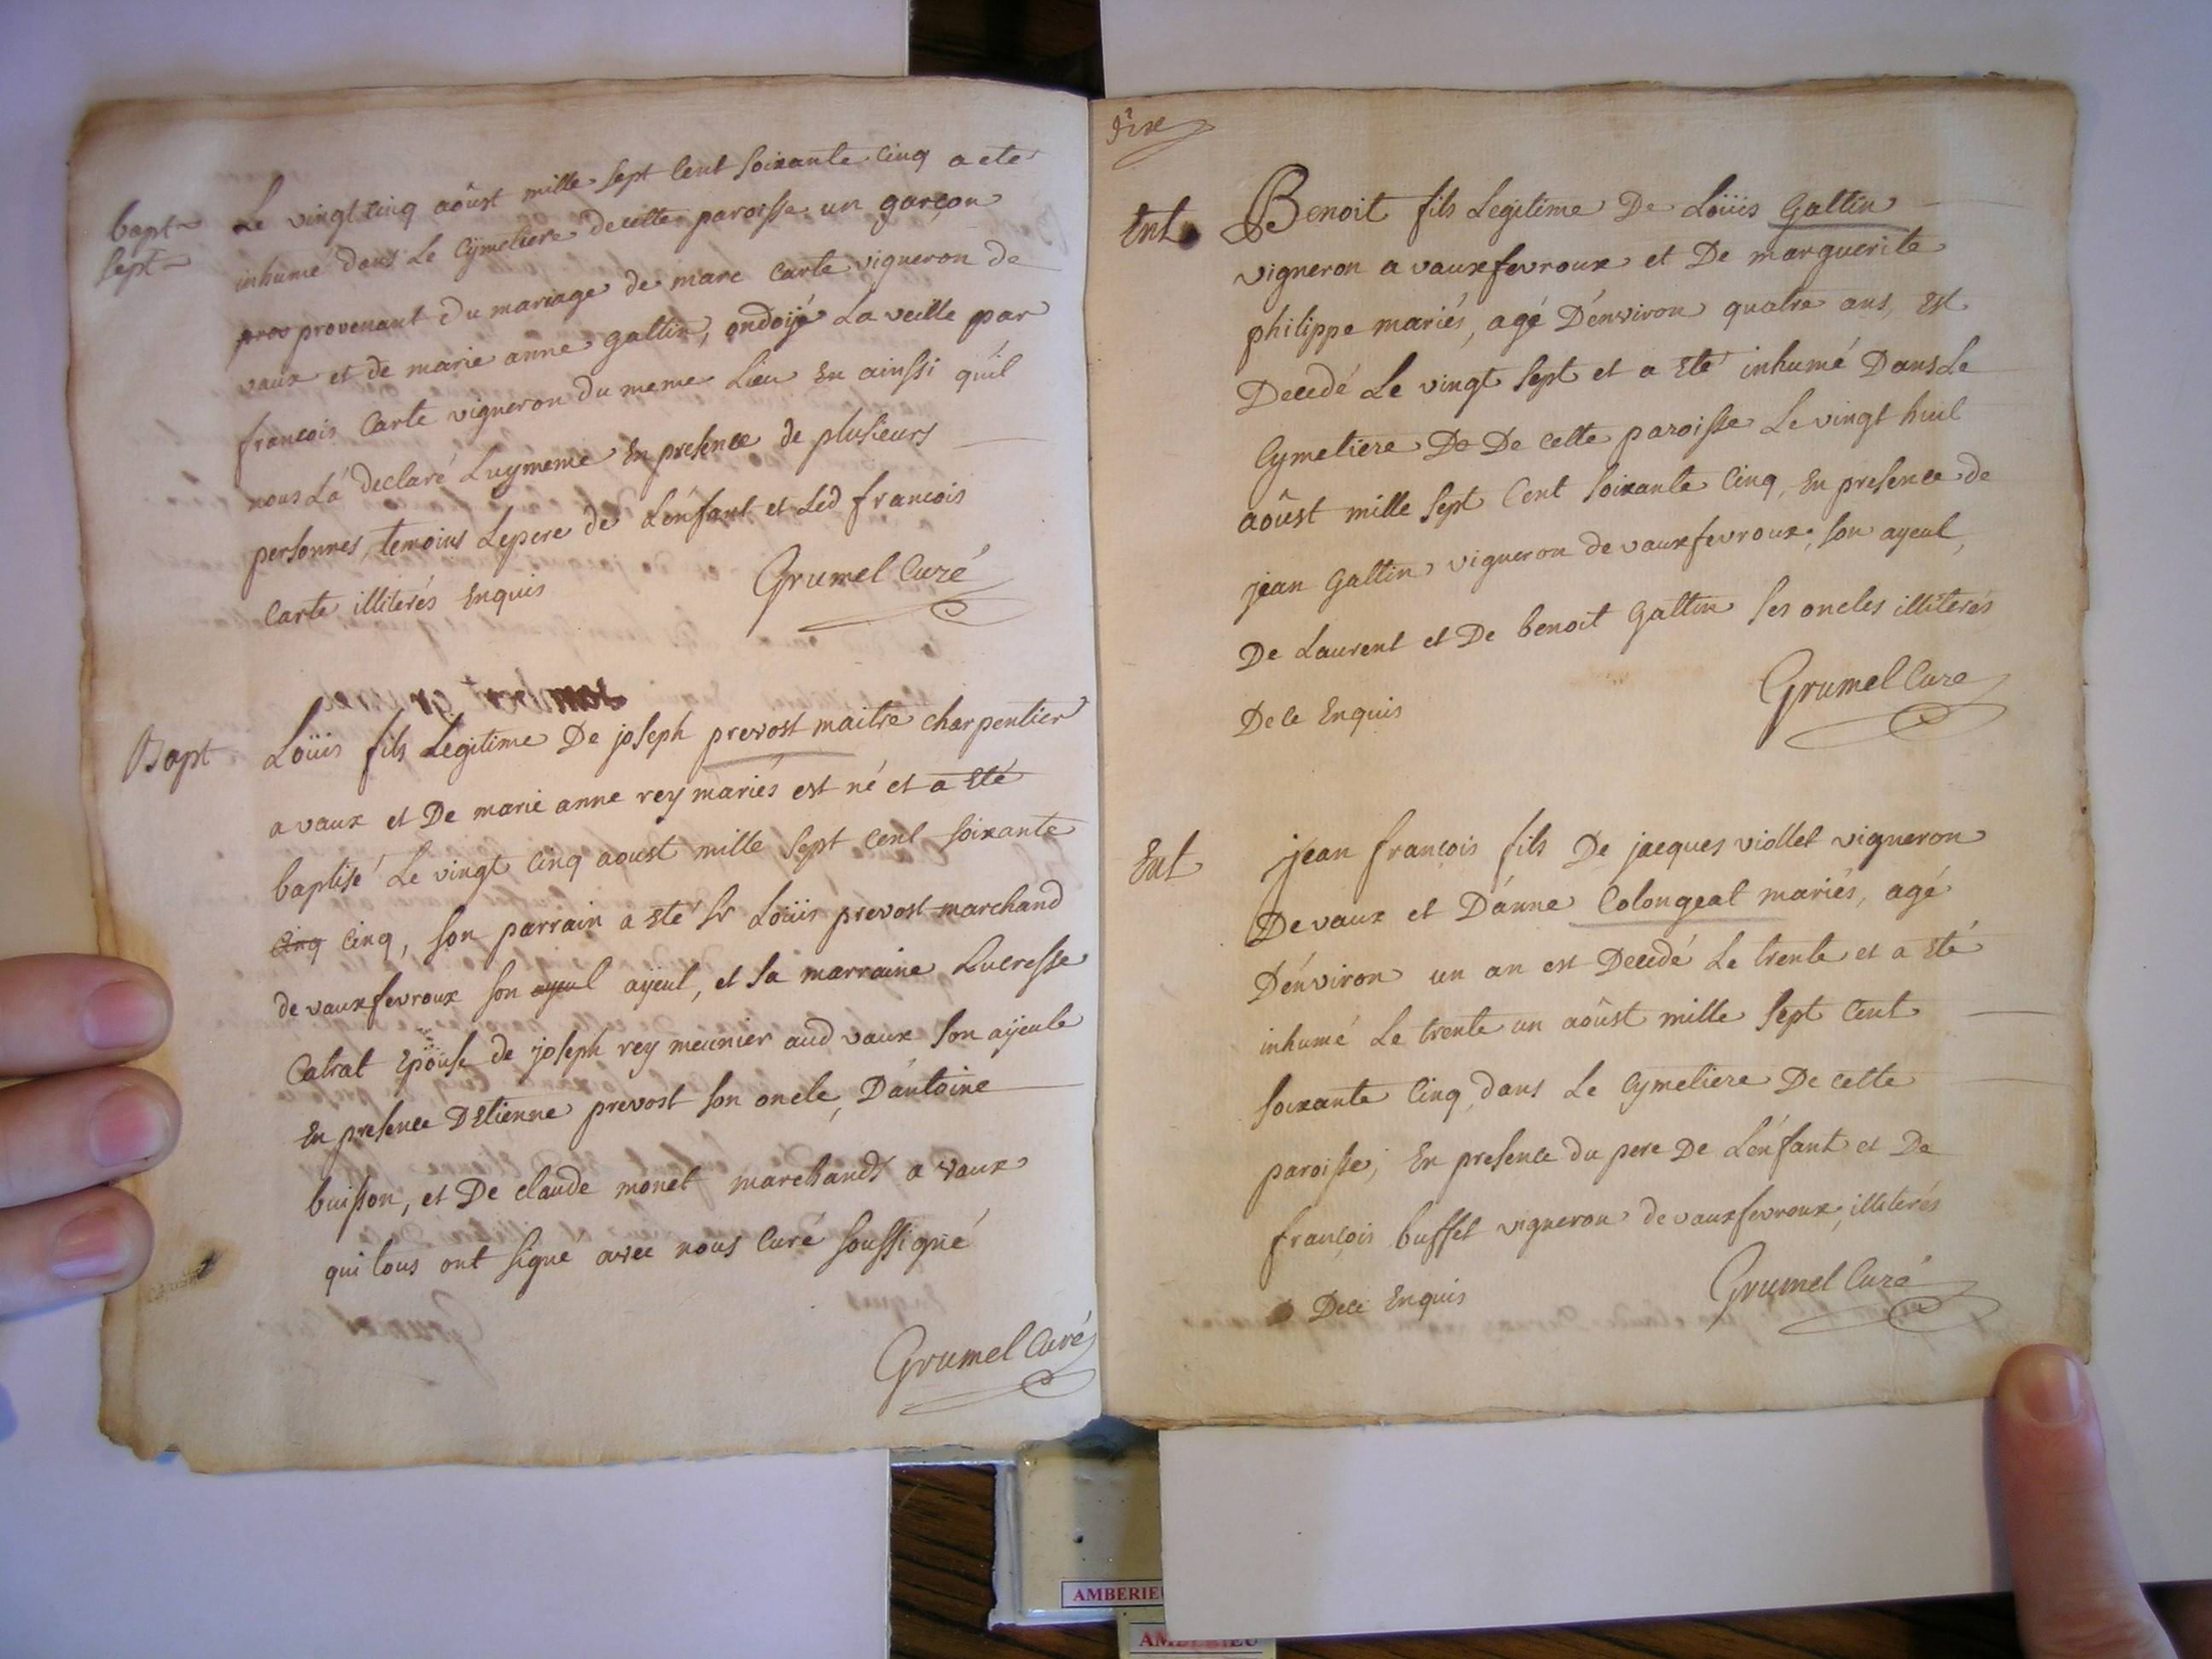 bapt
sept
Le vingt cinq aôust mille sept cent soixante cinq a ete
inhumé dans Le Cymetiere de cette paroisse un garçon
prov provenant du mariage de marc Carte vigneron de
vaux et de marie anne gattin, ondoijé La veille par
francois Carte vigneron du meme Lieu En ainssi qu'il
nous La declaré Luymeme En presence de plusieurs
personnes, temoins Le pere de L'énfant et Led francois
Carte illiterés Enquis
Grumel Curé
Bapt
Loüis fils Legitime De joseph prevost maitre charpentier
a vaux et De marie anne rey mariés est né et a Eté
baptisé Le vingt cinq aoust mille sept cent soixante
cinq cinq, son parrain a eté Sr Loüis prevost marchand
de vauxfevroux son ayeul ayeul, et sa marraine Lucresse
Catrat Epouse de joseph rey meunier aud vaux son ayeule
En presence D'Etienne prevost son oncle, D'antoine
buisson, et De claude monet marchands a vaux
qui tous ont signe avec nous Curé soussigné
Grumel Curé
Ent
Benoit fils Legitime De Loüis Gattin
vigneron a vauxfevroux et De marguerite
philippe mariés, agé D'énviron quatre ans, Est
Decedé Le vingt sept et a Eté inhumé Dans Le
Cymetiere De De cette paroisse Le vingt huit
aôust mille sept Cent soixante Cinq, En presence de
jean Gattin vigneron de vauxfevroux, son ayeul,
De Laurent et De benoit Gattin ses oncles illiterés
De ce Enquis
Grumel Cure
Ent
jean françois fils De jacques viollet vigneron
De vaux et D'anne Colongeat mariés, agé
D'énviron un an est Decedé Le trente et a Eté
inhumé Le trente un aôust mille sept Cent
soixante Cinq, dans Le Cymetiere De cette
paroisse, En presence du pere De L'énfant et De
françois buffet vigneron de vauxfevroux, illiterés
De ce Enquis
Grumel Curé
AMBERIEU